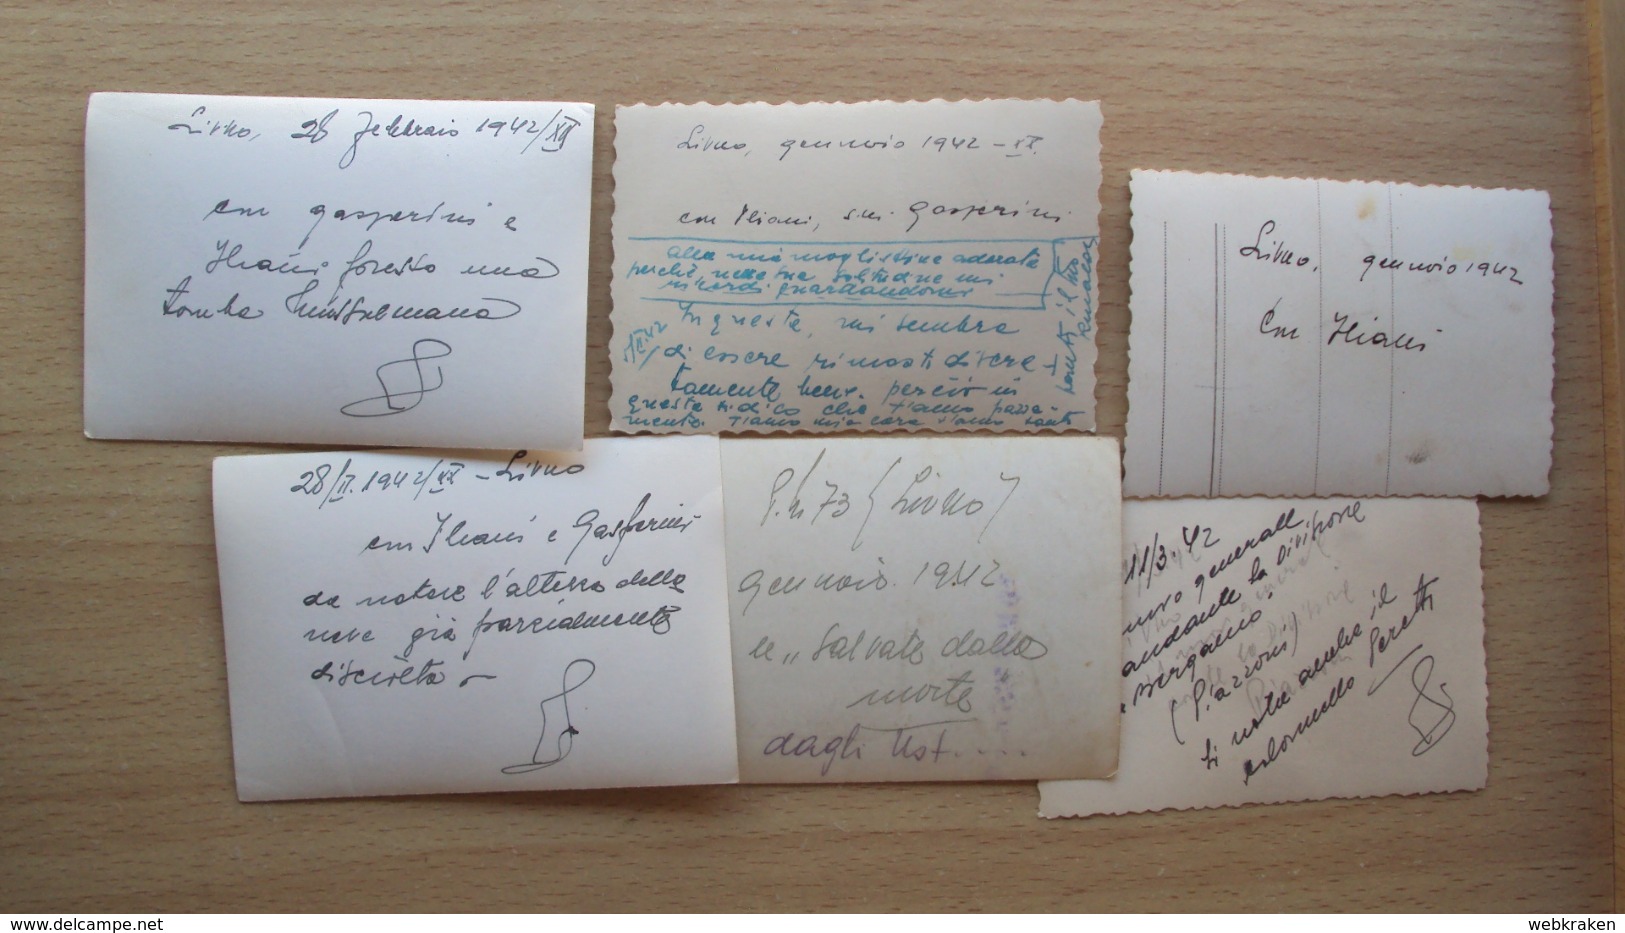 Livno, 28 Febbraio 1942/XX
con gasperini e
Iliani foresto una
tomba Mussulmana
Livno, gennaio 1942 - XX.
con Iliani, s.m. Gasperini
alla mia mogliettina adorata
perchè, nella sua solitudine mi
ricordi guardandomi
In queste, mi sembra
di essere rimasti discre-
tamente bene. perciò in
questa ti dico che t'amo pazza-
mente. T'amo mia cara t'amo tanto
tanto il tuo
Livno, gennaio 1942
Con Iliani
28/II.1942/XX - Livno
con Iliani e Gasperini
da notare l'altezza della
neve già parzialmente
disciolta
P.M 73 (Livno)
gennaio. 1942
le "Salvate dalla
morte
dagli Ust....
11/3.42
nuovo generale
andante la Divisione
Bergamo.
(Piazzoni)
Si nota anche il
colonnello Peretti
delcampe.net
webkraken